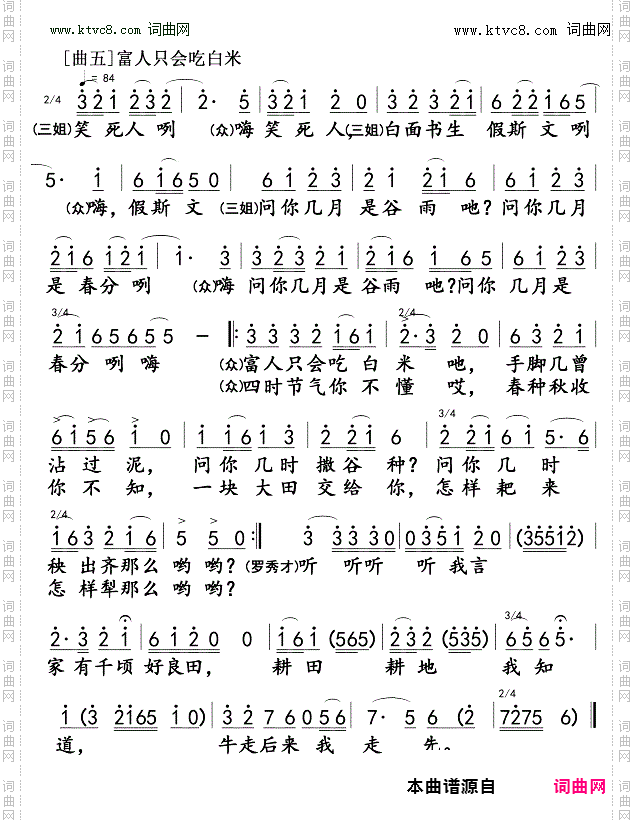 www.ktvc8.com 词曲网
www.ktvc8.com 词曲网
[曲五]富人只会吃白米
♩=84
2/4 3 2 1 2 3 2 | 2· 5 | 3 2 1 2 0 | 3 2 3 2 1 | 6 2 2 1 6 5 |
(三姐)笑死人咧 (众)嗨笑死人,(三姐)白面书生 假斯文咧
5· 1 | 6 1 6 5 0 | 6 1 2 3 | 2 2 1 6 | 6 1 2 3 |
(众)嗨,假斯文 (三姐)问你几月是谷雨吔?问你几月
2 1 6 1 2 1 | 1· 3 | 3 2 3 2 1 | 2 1 6 1 6 5 | 6 1 2 3 |
是春分咧 (众)嗨问你几月是谷雨吔?问你几月是
3/4 2 1 6 5 6 5 5 – ‖: 3 3 3 2 1 6 1 | 2/4 2· 3 2 0 | 6 3 2 1 |
春分咧嗨 (众)富人只会吃白米吔,手脚几曾
(众)四时节气你不懂哎,春种秋收
6 1 5 6 1 0 | 1 1 6 1 3 | 2 2 1 6 | 3/4 2 2 2 1 6 1 5· 6 |
沾过泥,问你几时撒谷种?问你几时
你不知,一块大田交给你,怎样耙来
2/4 1 6 3 2 1 6 | 5 5 :‖ 3 3 3 3 0 | 0 3 5 1 2 0 | (3 5 5 1 2)
秧出齐那么哟哟?(罗秀才)听听听听我言
怎样犁那么哟哟?
2· 3 2 1 | 6 1 2 0 0 | 1 6 1 (5 6 5) | 2 3 2 (5 3 5) | 3/4 6 5 6 5· |
家有千顷好良田,耕田耕地我知
1 (3 2 1 6 5 1 0) | 3 2 7 6 0 5 6 | 7· 5 6 (2 | 2/4 7 2 7 5 6) ‖
道,牛走后来我走先。
本曲谱源自 词曲网
词曲网